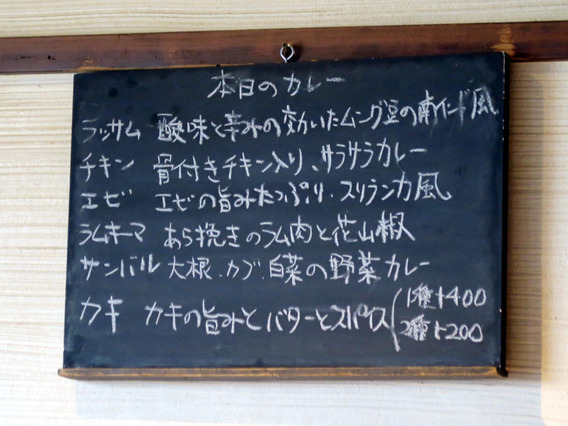 本日のカレー
ラッサム 酸味と辛みの効いたムング豆の南インド風
チキン 骨付きチキン入り、サラサラカレー
エビ エビの旨みたっぷり、スリランカ風
ラムキーマ あら挽きのラム肉と花山椒
サンバル 大根、カブ、白菜の野菜カレー
カキ カキの旨みとバターとスパイス(1種+400
2種+200